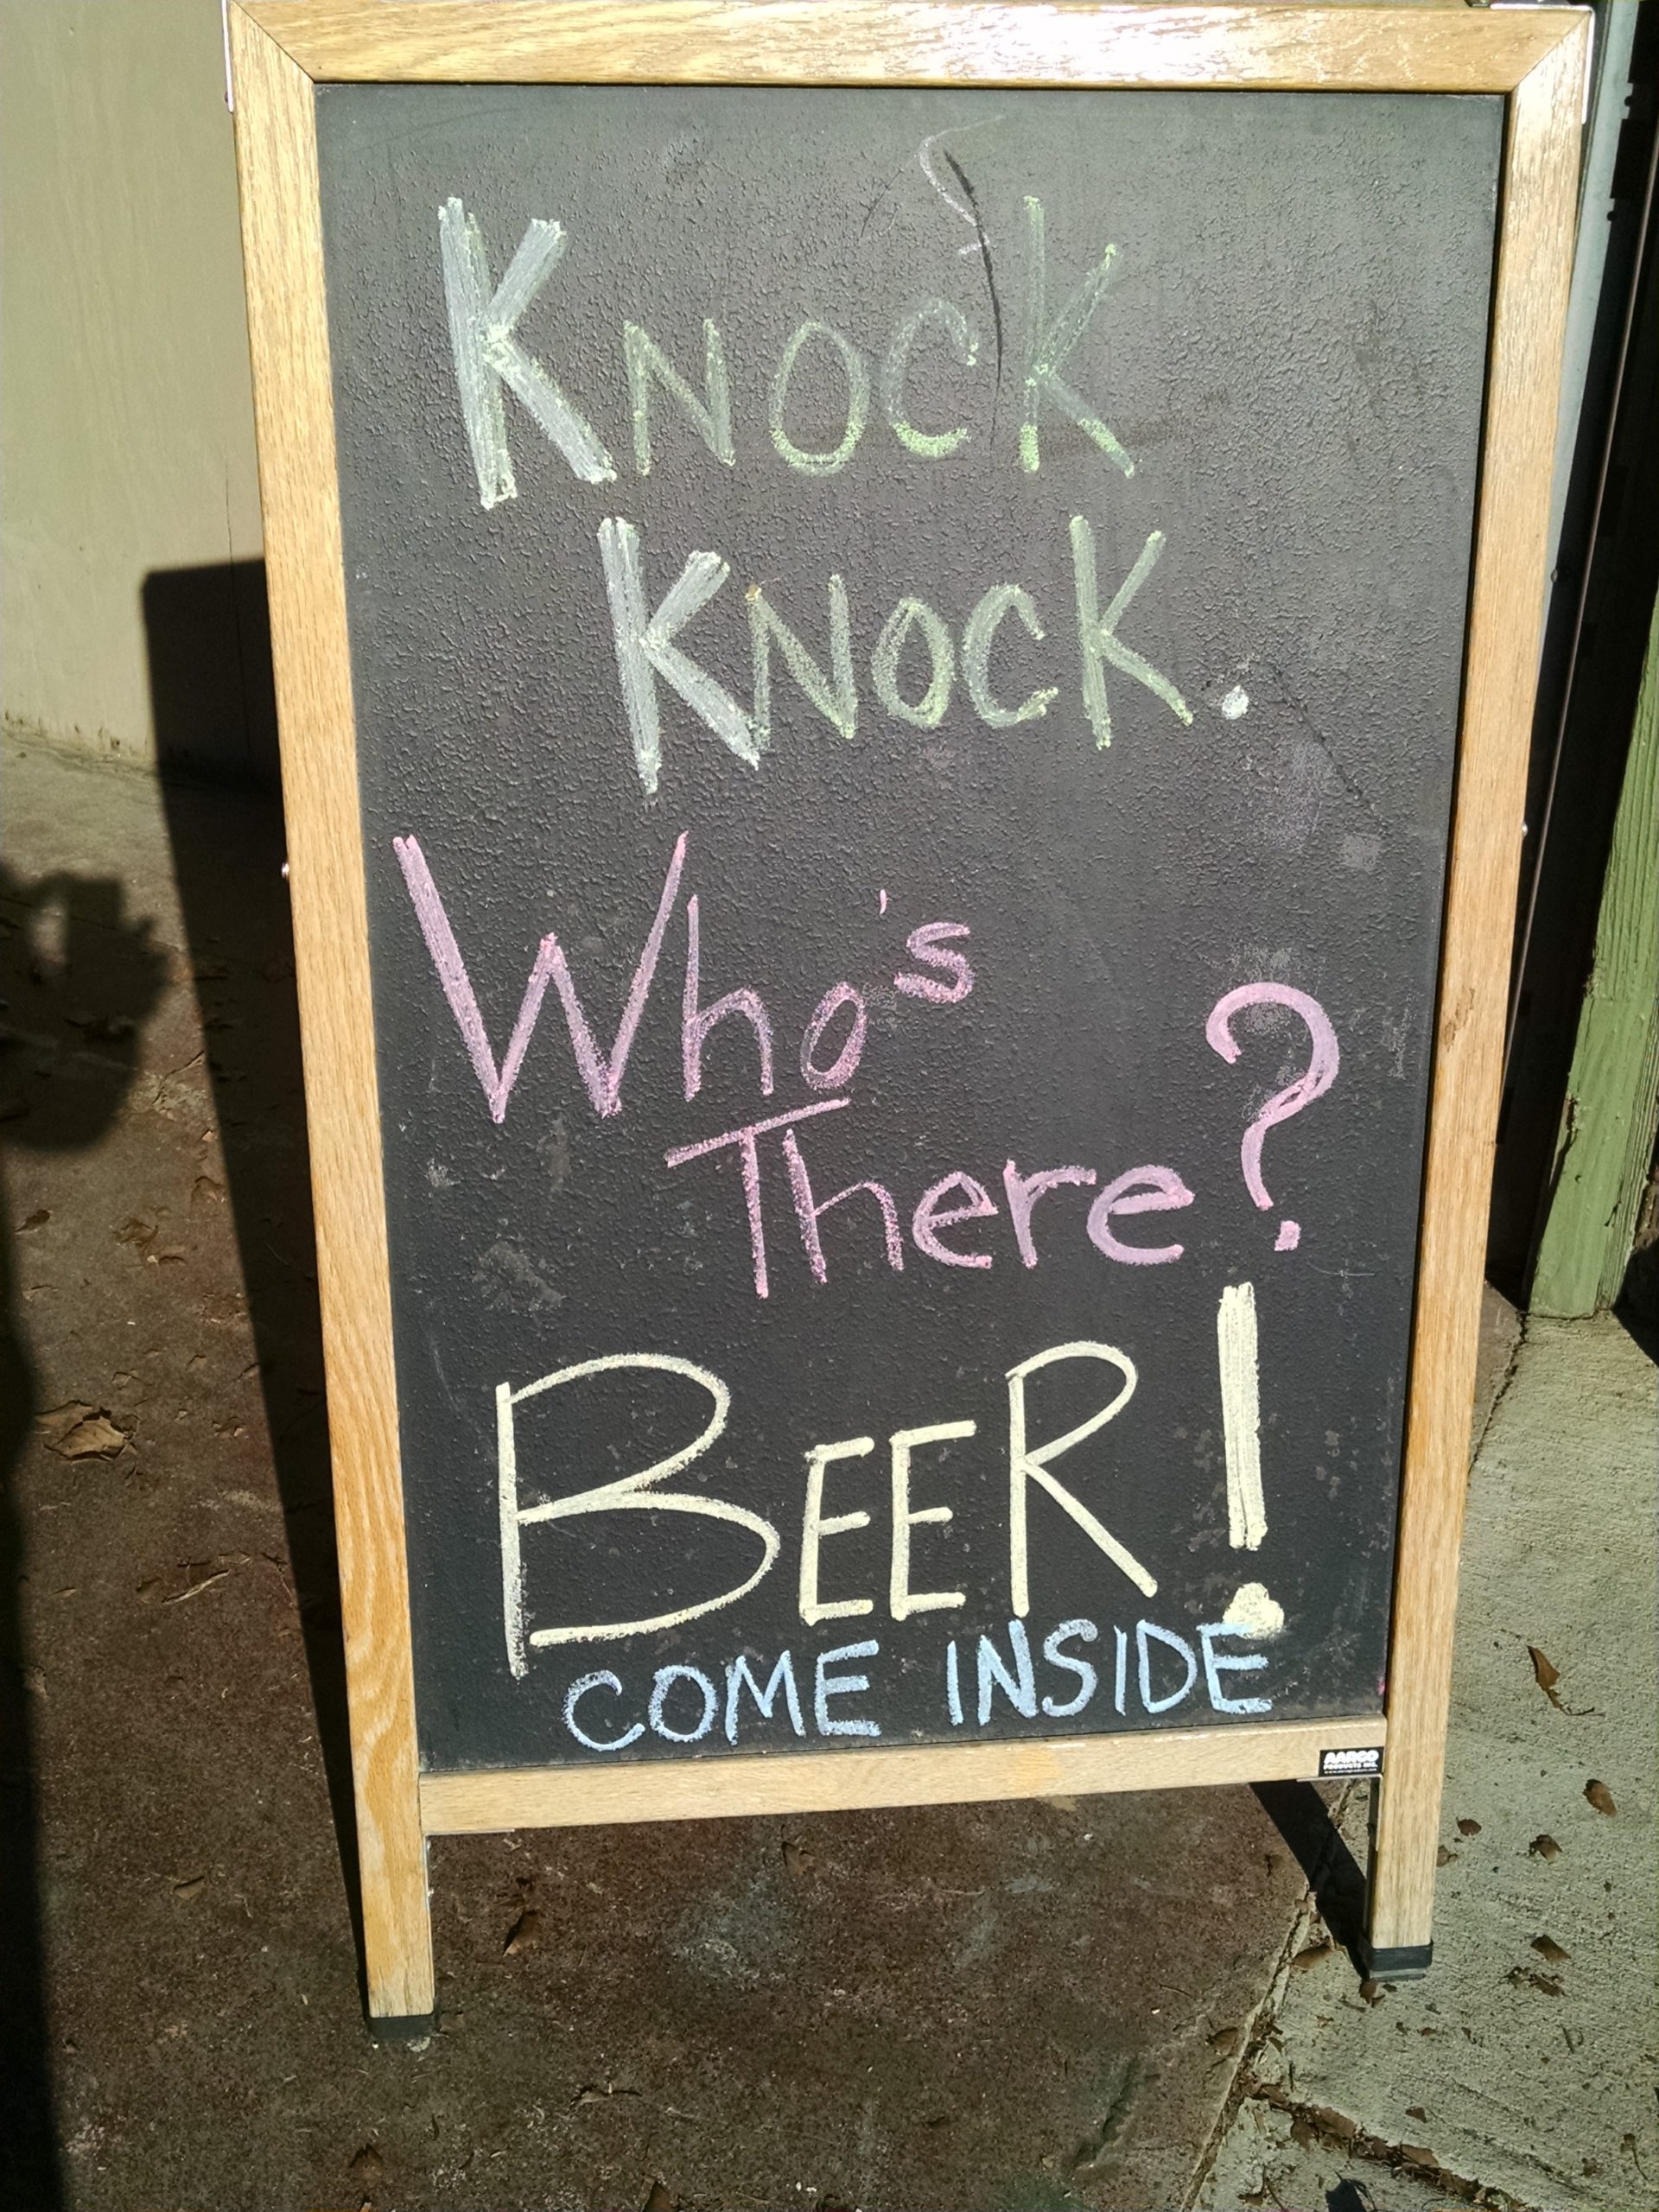 KNOCK
KNOCK.
Who's
There?
BEER!
COME INSIDE
AARCO
PRODUCTS INC.